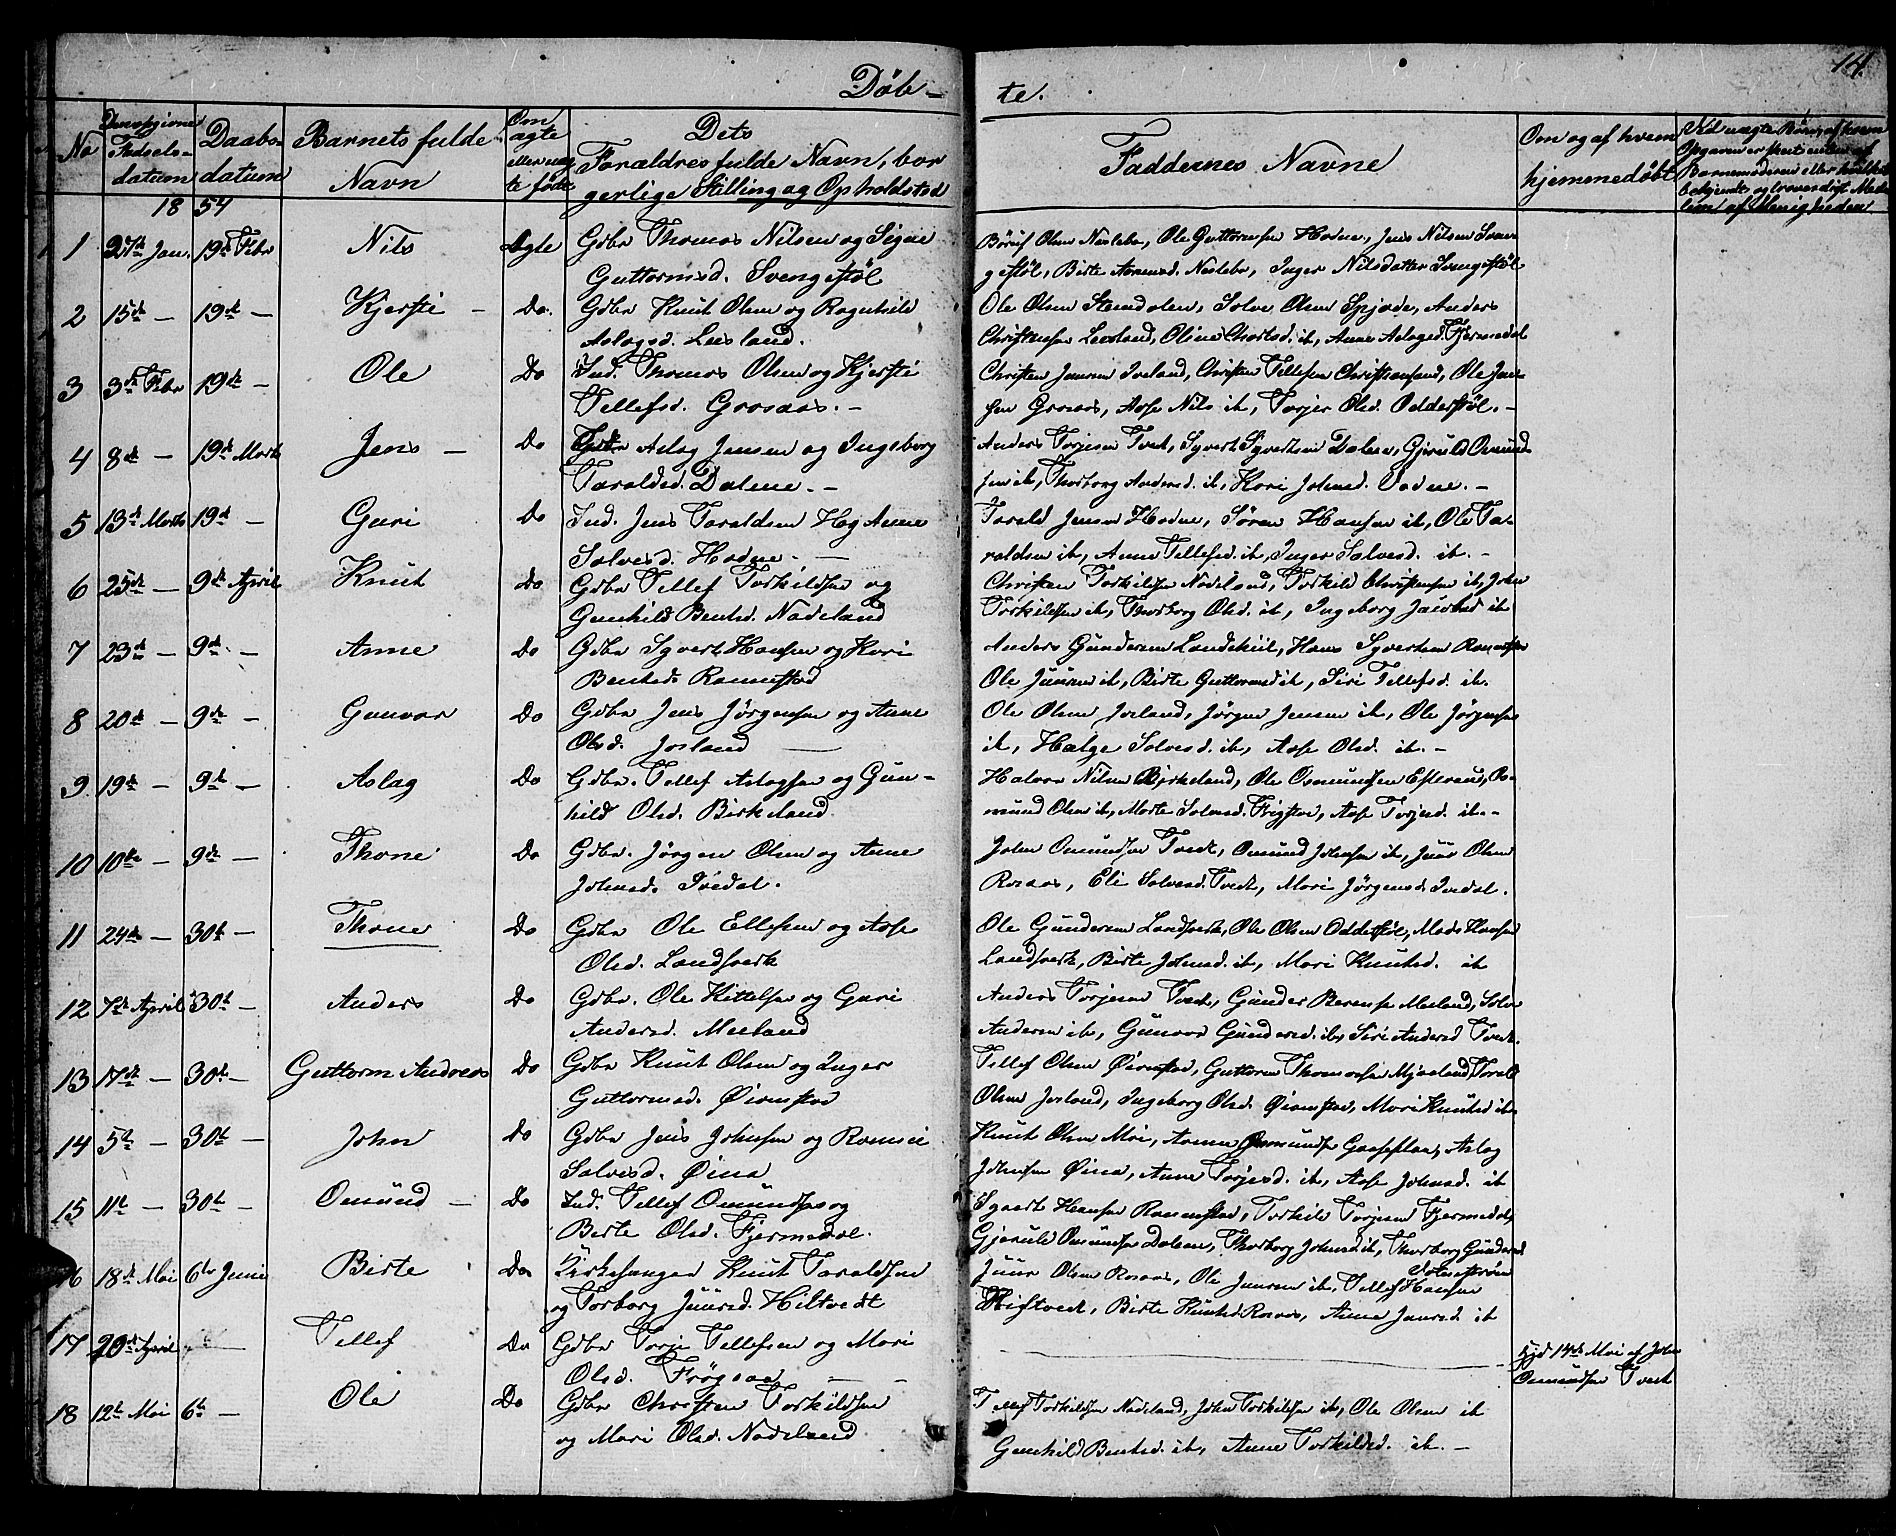 Döb-
te.
14.
No
Fødsels-
datum
Daabs-
datum
Barnets fulde
Navn
Om
ægte
eller uæg
te fødte
Dets
Forældres fulde Navn, bor
gerlige Stilling og Opholdsted
Faddernes Navne
Om og af hvem
hjemmedøbt
1854
1 27de Jan. 19de Febr Nils Ægte Gdbr Thomas Nilsen og Signe
Guttormsd. Svengestøl
Ole Guttormsen Hodne, Jens Nilsen Sven-
gestøl, Birte Inger Nilsdatter Svengestøl
2 15de — 19de — Kjersti — Do. Gdbr Knut Olsen og Ragnhild
Aslagsd. Løsland.
Ole Olsen Stemdalen, Solve Olsen Spjode, Anders
Christensen Løsland, it, Anne Aslagsd. Fjermedal
3 3de Febr 19de — Ole Do Ind. Thomas Olsen og Kjersti
Tellefsd. Grosaas. —
Christen Jensen Iveland, Christen Tellefsen Christiansand, Ole Jen-
sen Grosaas, Aase Nils it, Torjer Olsd. Oddestøl. —
4 8de — 19de Marts Jens — Do Gdbr Aslag Jensen og Ingeborg
Taraldsd. Dalene. —
Anders Torjesen Tvedt, Syvert Syvertsen Dalene, Gjeruld Osmund-
sen it, Thorborg Andersd. it, Kari Johnsd. —
5 13de Marts 19de — Guri Do Ind. Jens Taraldsen H og Anne
Salvesd. Hodne. —
Tarald Jensen Hodne, Søren Hansen it, Ole Ta-
raldsen it, Anne Tellefsd. it, Inger Salvesd. it. —
6 25de — 9de April Knut Do Gdbr Tellef Torkildsen og
Gunhild Bentsd. Nodeland
Christen Torkilsen Nodeland, Torkild Christensen it, John
Torkildsen it, Thorborg Olsd. it, Ingeborg Jacobsd it
7 23de — 9de — Anne Do Gdbr Syvert Hansen og Kari
Bentsd. Romestad
Anders Gundersen Landskiil, Hans Syvertsen Romestad
Ole Juursen it, Birte Guttormsd it, Siri Tellefsd. it.
8 20de — 9de — Gunvor Do Gdbr Jens Jørgensen og Anne
Olsd. Josland —
Ole Olsen Josland, Jørgen Jensen it, Ole Jørgensen
it, Hælge Solvesd. it, Aase Olsd. it. —
9 19de — 9de — Aslag Do Gdbr. Tellef Aslagsen og Gun-
hild Olsd. Birkeland.
Halvor Nilsen Birkeland, Ole Osmundsen Os-
mund Olsen it, Marte Salvesd. Frigstad, Aase Torjesd. it. —
10 10de — 9de — Thone Do Gdbr. Jørgen Olsen og Anne
Johnsd. Ivedal.
John Osmundsen Tvedt, Osmund Johnsen it, Juur Olsen
Rosaas, Eli Solvesd. Tvedt, Mari Jørgensd. Ivedal.
11 24de — 30te — Thone Do Gdbr Ole Ellefsen og Aase
Olsd. Landsverk
Ole Gundersen Landsverk, Ole Olsen Oddestøl, Mads Hansen
Landsverk, Birte Johnsd. it, Mari Knutsd. it
12 7de April 30te — Anders Do Gdbr. Ole Kittelsen og Guri
Andersd. Meeland
Anders Torjesen Tvedt, Gunder Berensen Meeland, Solve
Andersen it, Gunvor Gundersd. it, Siri Andersd Tvedt.
13 17de — 30te — Guttorm Andreas Do Gdbr Knut Olsen og Inger
Guttormsd. Øvenstad
Tellef Olsen Øvenstad, Guttorm Thomassen Mjaaland, Tarald
Olsen Josland, Ingeborg Olsd. Øvenstad, Mari Knutsd it.
14 5te — 30te — John Do Gdbr Jens Johnsen og Romsei
Salvesd. Øina
Knut Olsen Moi, Osmundsen Gaaseflaa, Aslag
Johnsen Øina, Anne Torjesd. it, Aase Johnsd. it
15 11te — 30te — Osmund — Do Ind. Tellef Osmundsen og
Birte Olsd. Fjermedal.
Syvert Hansen Romestad, Torkild Torjesen Fjermedal,
Gjeruld Osmundsen Dalene, Thorborg Johnsd it, Thorborg Gundersd
16 18de Mai 6te Juni Birte Do Kirkesanger Knut Taraldsen
og Torborg Juursd. Hiltvedt
Juur Olsen Rosaas, Ole Juursen it, Tellef Hansen
Hiltvedt, Birte Knutsd Rosaas, Anne Juursd it
17 20de April Tellef Do Gdbr Torje Tellefsen og Mari
Olsd. Frøysaa —
Hjd 14de Mai af John
Osmundsen Tvedt
18 12te Mai 6te — Ole Do Gdbr Christen Torkildsen
og Mari Olsd. Nodeland
Tellef Torkildsen Nodeland, John Torkildsen it, Ole Olsen it
Gunhild Bentsd. it, Anne Torkildsd. it. —